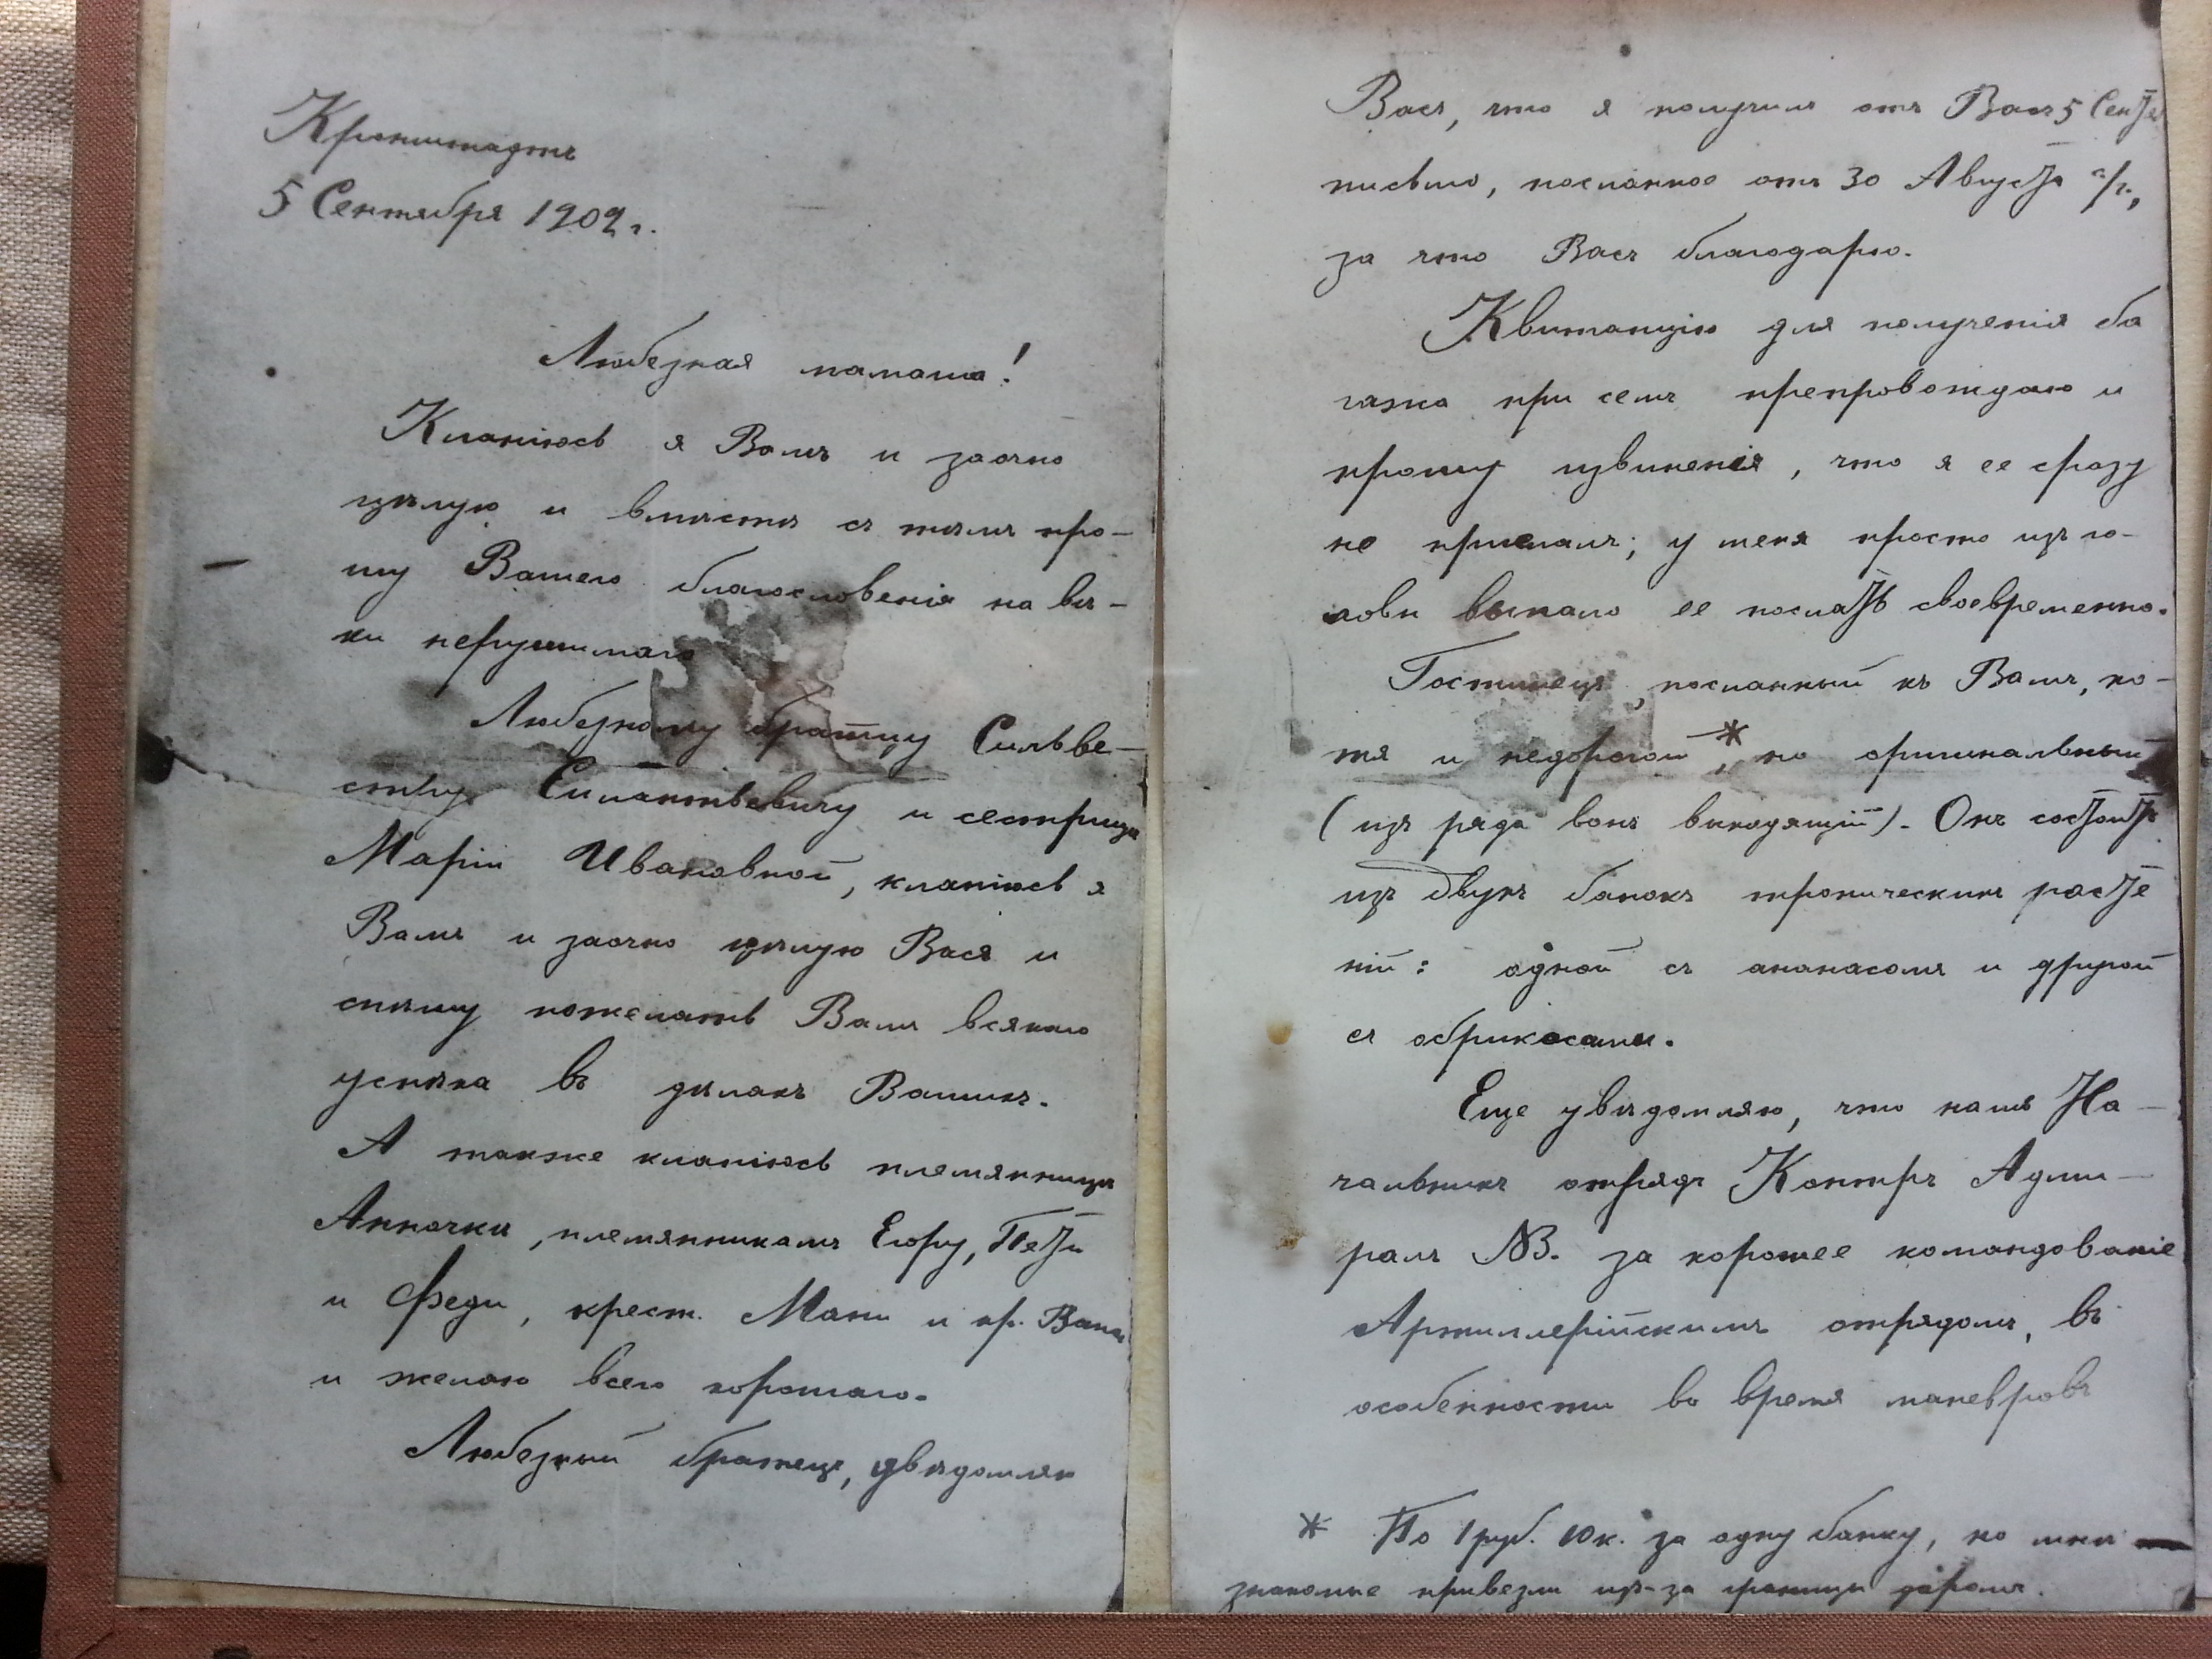 Кронштадтъ
5 Сентября 1902 г.
Любезная мамаша!
Кланіюсь я Вамъ и заочно
цѣлую и вмѣстѣ съ тѣмъ про-
шу Вашего благословенія на вѣ-
ки нерушимаго
Любезному братцу Сильве-
стру Силантьевичу и сестрицѣ
Маріи Ивановной, кланіюсь я
Вамъ и заочно цѣлую Васъ и
спѣшу пожелать Вамъ всякаго
успѣха въ дѣлахъ Вашихъ.
А также кланіюсь племянницѣ
Анночкѣ, племянникамъ Егору, Пети
и Феди, крест. Мани и кр. Вани
и желаю всего хорошаго.
Любезный братецъ, увѣдомляю
Васъ, что я получилъ отъ Васъ 5 Сентя
письмо, посланное отъ 30 Августа с/г.,
за что Васъ благодарю.
Квитанцію для полученія ба
гажа при семъ препровождаю и
прошу извиненія, что я ее сразу
не прислалъ; у меня просто изъ го-
ловы выпало ее послать своевременно.
Гостинецъ, посланный къ Вамъ, хо-
тя и недорогой *, но оригинальный
(изъ ряда вонъ выходящій). Онъ состоитъ
изъ двухъ банокъ тропическихъ расте
ній: одной съ ананасомъ и другой
съ обрикосами.
Еще увѣдомляю, что нашъ На-
чальникъ отряда Контръ Адми-
ралъ NB. за хорошее командованіе
Артиллерійскимъ отрядомъ, въ
особенности во время маневровъ
* По 1 руб. 10 к. за одну банку, но мнѣ
знакомые привезли изъ-за границы даромъ.